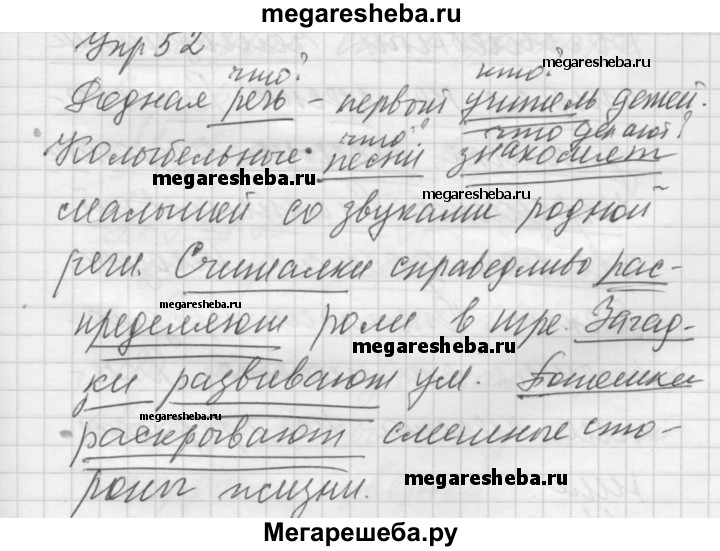 megaresheba.ru
Упр 52
что? кто?
Родная речь - первый учитель детей.
что? что делают?
Колыбельные песни знакомят
megaresheba.ru megaresheba.ru
малышей со звуками родной
речи. Считалки справедливо рас-
megaresheba.ru
пределяют роли в игре. Загад-
megaresheba.ru
ки развивают ум. Потешки
megaresheba.ru
раскрывают смешные сто-
megaresheba.ru
роны жизни.
Мегарешеба.ру